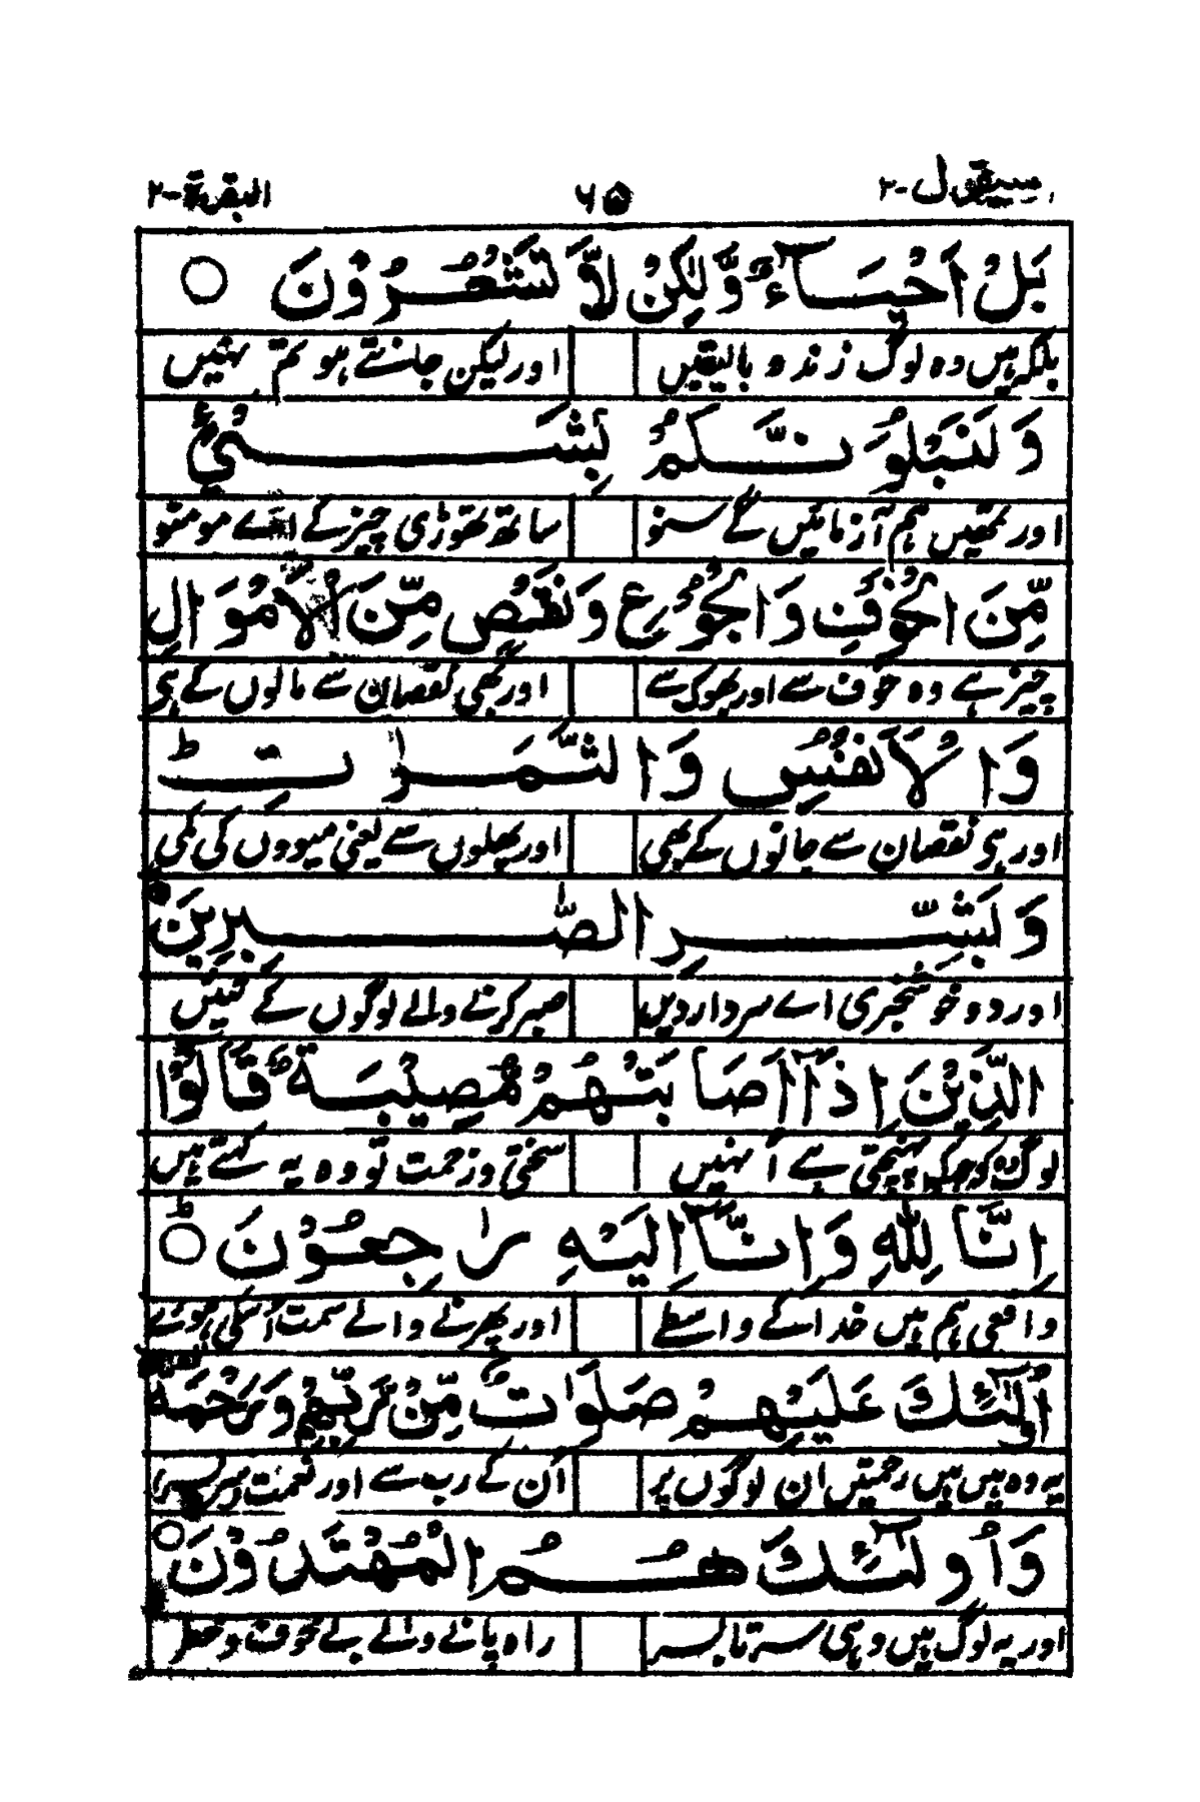 سیقول-۲ ۶۵ البقرة-۲
بَلْ اَحْیَآءٌ وَّلٰکِنْ لَّا تَشْعُرُوْنَ ○
بلکہ ہیں وہ لوگ زندہ بالیقیں اور لیکن جانتے ہو تم نہیں
وَلَنَبْلُوَنَّکُمْ بِشَیْءٍ
اور تمھیں ہم آزمائیں گے سنو ساتھ تھوڑی چیز کے اے مومنو
مِّنَ الْخَوْفِ وَالْجُوْعِ وَنَقْصٍ مِّنَ الْاَمْوَالِ
چیز ہے وہ خوف سے اور بھوک سے اور بھی نقصان سے مالوں کے ہی
وَالْاَنْفُسِ وَالثَّمَرٰتِ ؕ
اور ہی نقصان سے جانوں کے بھی اور پھلوں سے یعنی میووں کی کمی
وَبَشِّرِ الصّٰبِرِیْنَ
اور دو خوشخبری اے سردار دیں صبر کرنے والے لوگوں کے تئیں
الَّذِیْنَ اِذَآ اَصَابَتْهُمْ مُّصِیْبَةٌ قَالُوْٓا
لوگ وہ کہ جبکہ پہنچتی ہے اُنہیں سختی و زحمت تو وہ یہ کہتے ہیں
اِنَّا لِلّٰهِ وَاِنَّآ اِلَیْهِ رٰجِعُوْنَ ○ؕ
واقعی ہم ہیں خدا کے واسطے اور پھرنے والے سمت اُسکی
اُولٰٓئِكَ عَلَیْهِمْ صَلَوٰتٌ مِّنْ رَّبِّهِمْ وَرَحْمَةٌ
یہ وہ ہیں ہیں رحمتیں ان لوگوں پر اُن کے رب سے اور نعمت
وَاُولٰٓئِكَ هُمُ الْمُهْتَدُوْنَ ○
اور یہ لوگ ہیں وہی سر تا بسر راہ پانے والے بے خوف و خطر